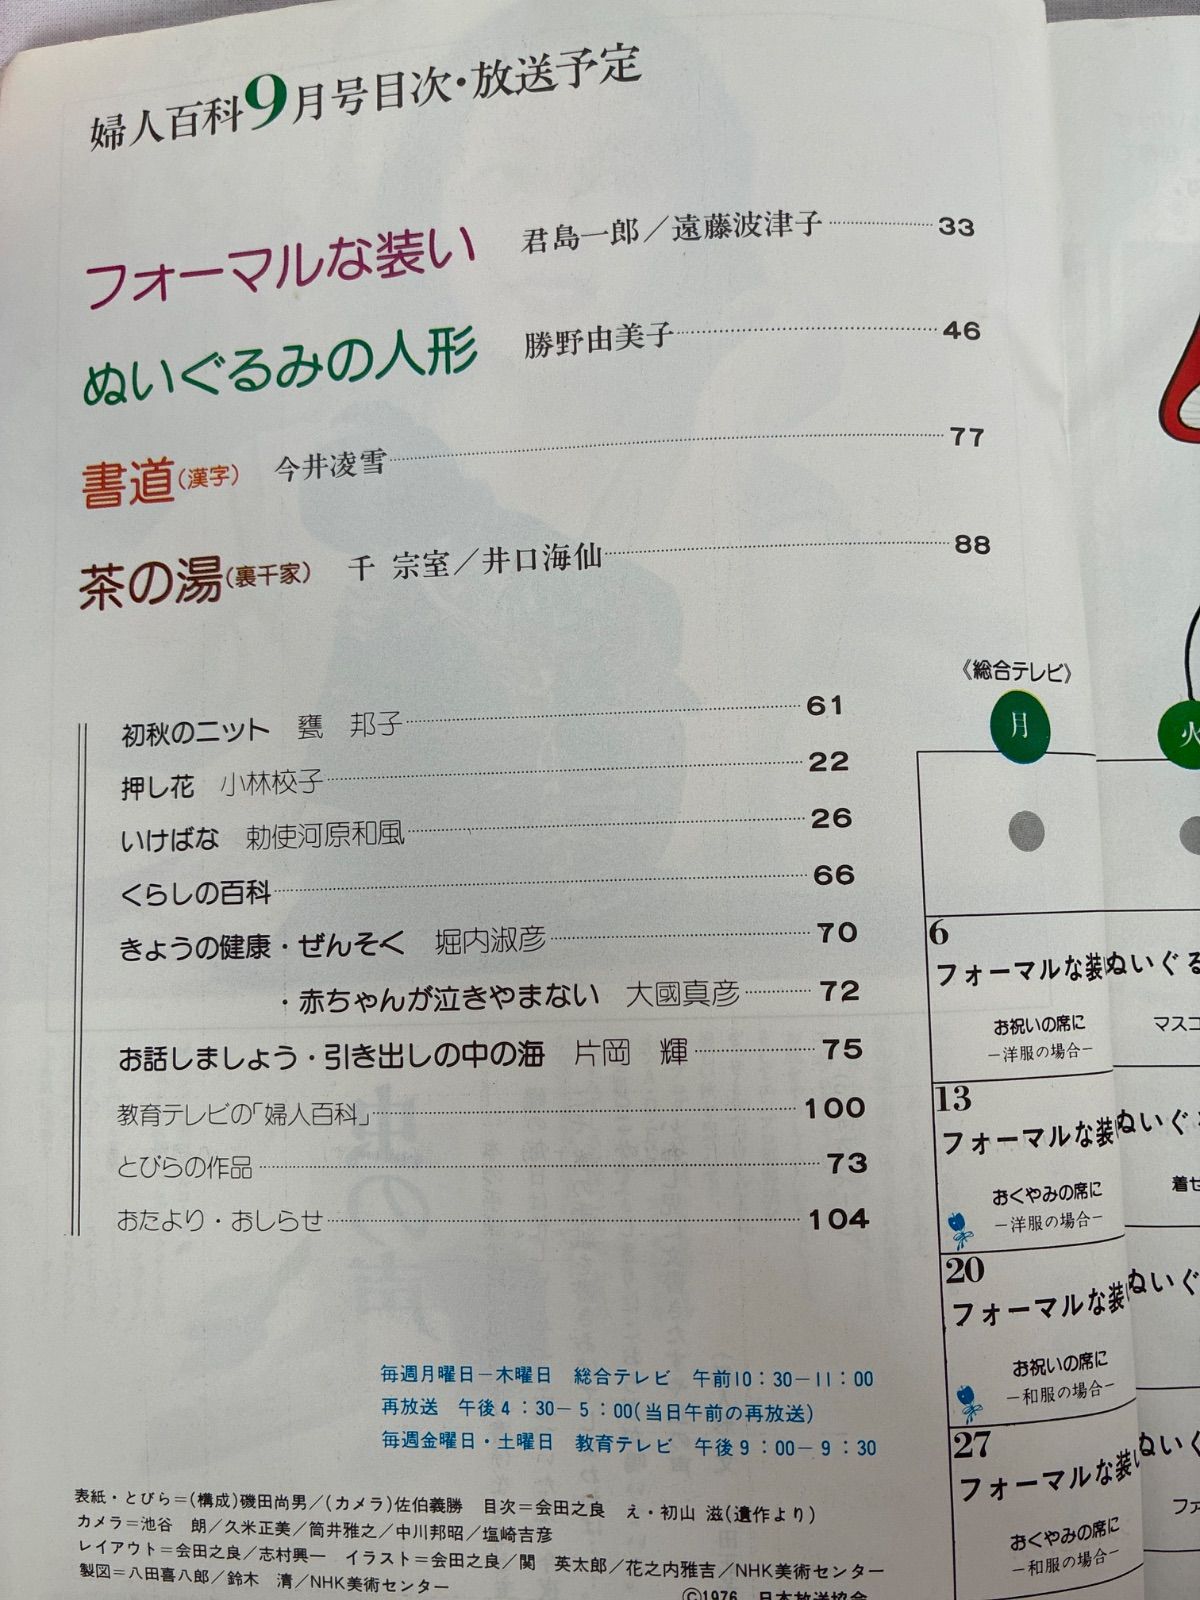 婦人百科9月号目次・放送予定
フォーマルな装い 君島一郎／遠藤波津子 33
ぬいぐるみの人形 勝野由美子 46
書道(漢字) 今井凌雪 77
茶の湯(裏千家) 千 宗室／井口海仙 88
初秋のニット 甕 邦子 61
押し花 小林校子 22
いけばな 勅使河原和風 26
くらしの百科 66
きょうの健康・ぜんそく 堀内淑彦 70
・赤ちゃんが泣きやまない 大國真彦 72
お話しましょう・引き出しの中の海 片岡 輝 75
教育テレビの「婦人百科」 100
とびらの作品 73
おたより・おしらせ 104
《総合テレビ》
月 火
6
フォーマルな装 ぬいぐる
お祝いの席に マスコ
－洋服の場合－
13
フォーマルな装 ぬいぐ
おくやみの席に 着せ
－洋服の場合－
20
フォーマルな装 ぬいぐ
お祝いの席に
－和服の場合－
27
フォーマルな装 ぬいぐ
おくやみの席に ファ
－和服の場合－
毎週月曜日－木曜日 総合テレビ 午前10：30－11：00
再放送 午後4：30－5：00(当日午前の再放送)
毎週金曜日・土曜日 教育テレビ 午後9：00－9：30
表紙・とびら＝(構成)磯田尚男／(カメラ)佐伯義勝 目次＝会田之良 え・初山 滋(遺作より)
カメラ＝池谷 朗／久米正美／筒井雅之／中川邦昭／塩崎吉彦
レイアウト＝会田之良／志村興一 イラスト＝会田之良／関 英太郎／花之内雅吉／NHK美術センター
製図＝八田喜八郎／鈴木 清／NHK美術センター
©1976 日本放送協会